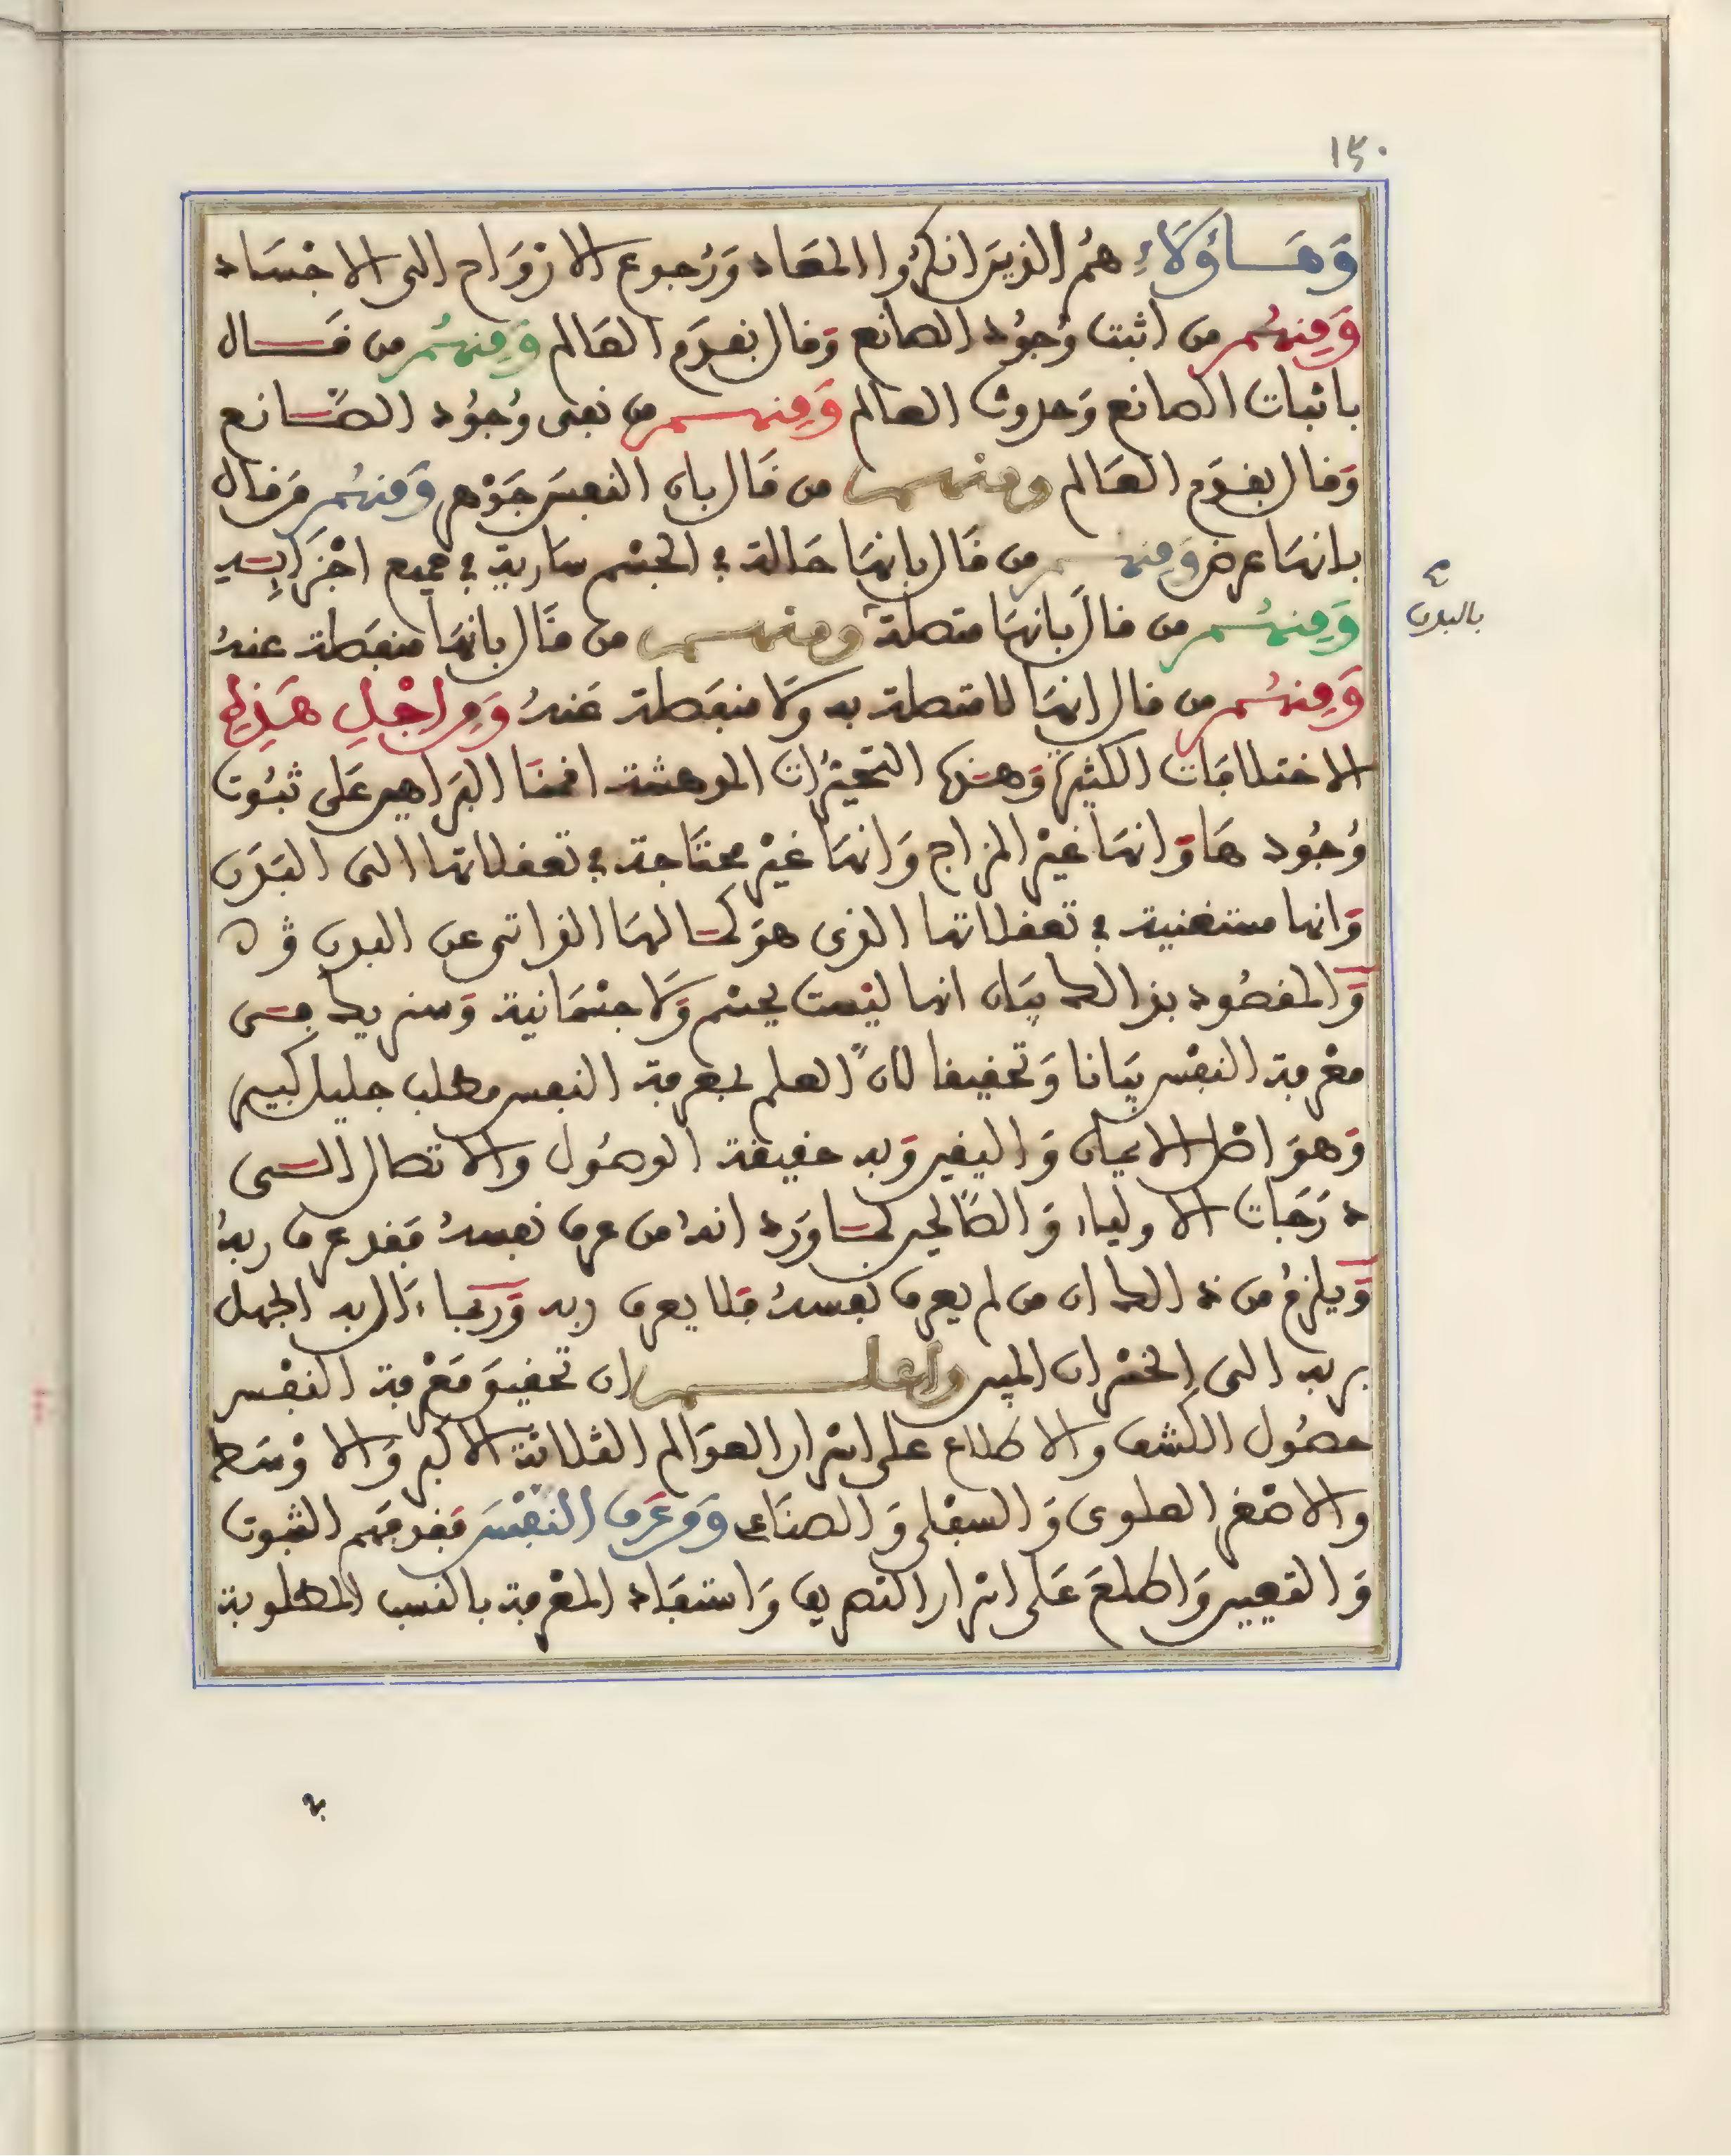 ١٣٠
وَهَـــاؤُلَاءِ هُمُ الذين انكرُوا المعَاد وَرُجوع الارْوَاح الى الاجْسَاد
وَمِنهُـم من اثبت وُجُود الصانع وَقال بقدَم العَالم وَمِنهُم من قَــال
باثبات الصانع وَحدوث العالم وَمِنهـم من نفى وُجُود الصَّـانع
وَقال بقدَم العَالم ومنهـم من قَال بان النفس جَوْهر وَمنهُم مَن قال
بانهَا عرض وَمِنهـم من قَال بانهَا حَالة في الجسْم سَارية في جميع اجْزَائِـه
وَمِنهُـم من قال بانهَا متصلة ومنهـم من قَال بانهَا منفَصلة عنهُ
بالبدن
وَمِنهُـم من قال انهَا لا متصلة به وَلا منفَصلة عَنهُ وَمِن اجْلِ هَذِهِ
الاختلافَات الكثيرة وَهـذه التحيّرُات المدهشة اقمنَا البرَاهين عَلى ثبُوت
وُجُودهَا وَانهَا غيْر المزاج وَانهَا غيْر محتَاجة في تعقلاتها الى البَدَن
وَانها مستغنية في تعقلاتها الذى هوَ كمـالهَا الذاتي عن البدن
وَالمقصُود بذالك بيَان انها ليْست بجسْم وَلَا جسْمَانية وَسنزيدك فـى
معْرفة النفْس بيَانا وَتحقيقا لأن العلم بمعرفة النفس مطلب جليل كبير
وَهوَ اصْل الايمان وَاليقين وَبه حقيقة الوصُول والاتصال الـى
دَرَجَات الاولياء وَالصَالحين كمـا وَرد انهُ من عرف نفسهُ فَقد عرف ربهُ
وَيلزمُ من ذالك ان من لم يعرف نفسهُ فَلا يعرف ربه وَربمَا ءَال به الجهل
بربه الى الخسْران المبين واعلـــم ان تحقيق مَعْرفة النفْس
حصُول الكشف والاطلاع على اسْرار العوَالم الثلاثة الاكبر وَالاوْسَط
والاصْغر العلوى وَالسفْلى وَالصنَاعى وَمَن عَرَف النفْسَ فَقد فَهم الثبوت
وَالتعيين وَاطلعَ عَلى اسْرار التصريف وَاستفَاد المعْرفة بالنسب المطلوبة